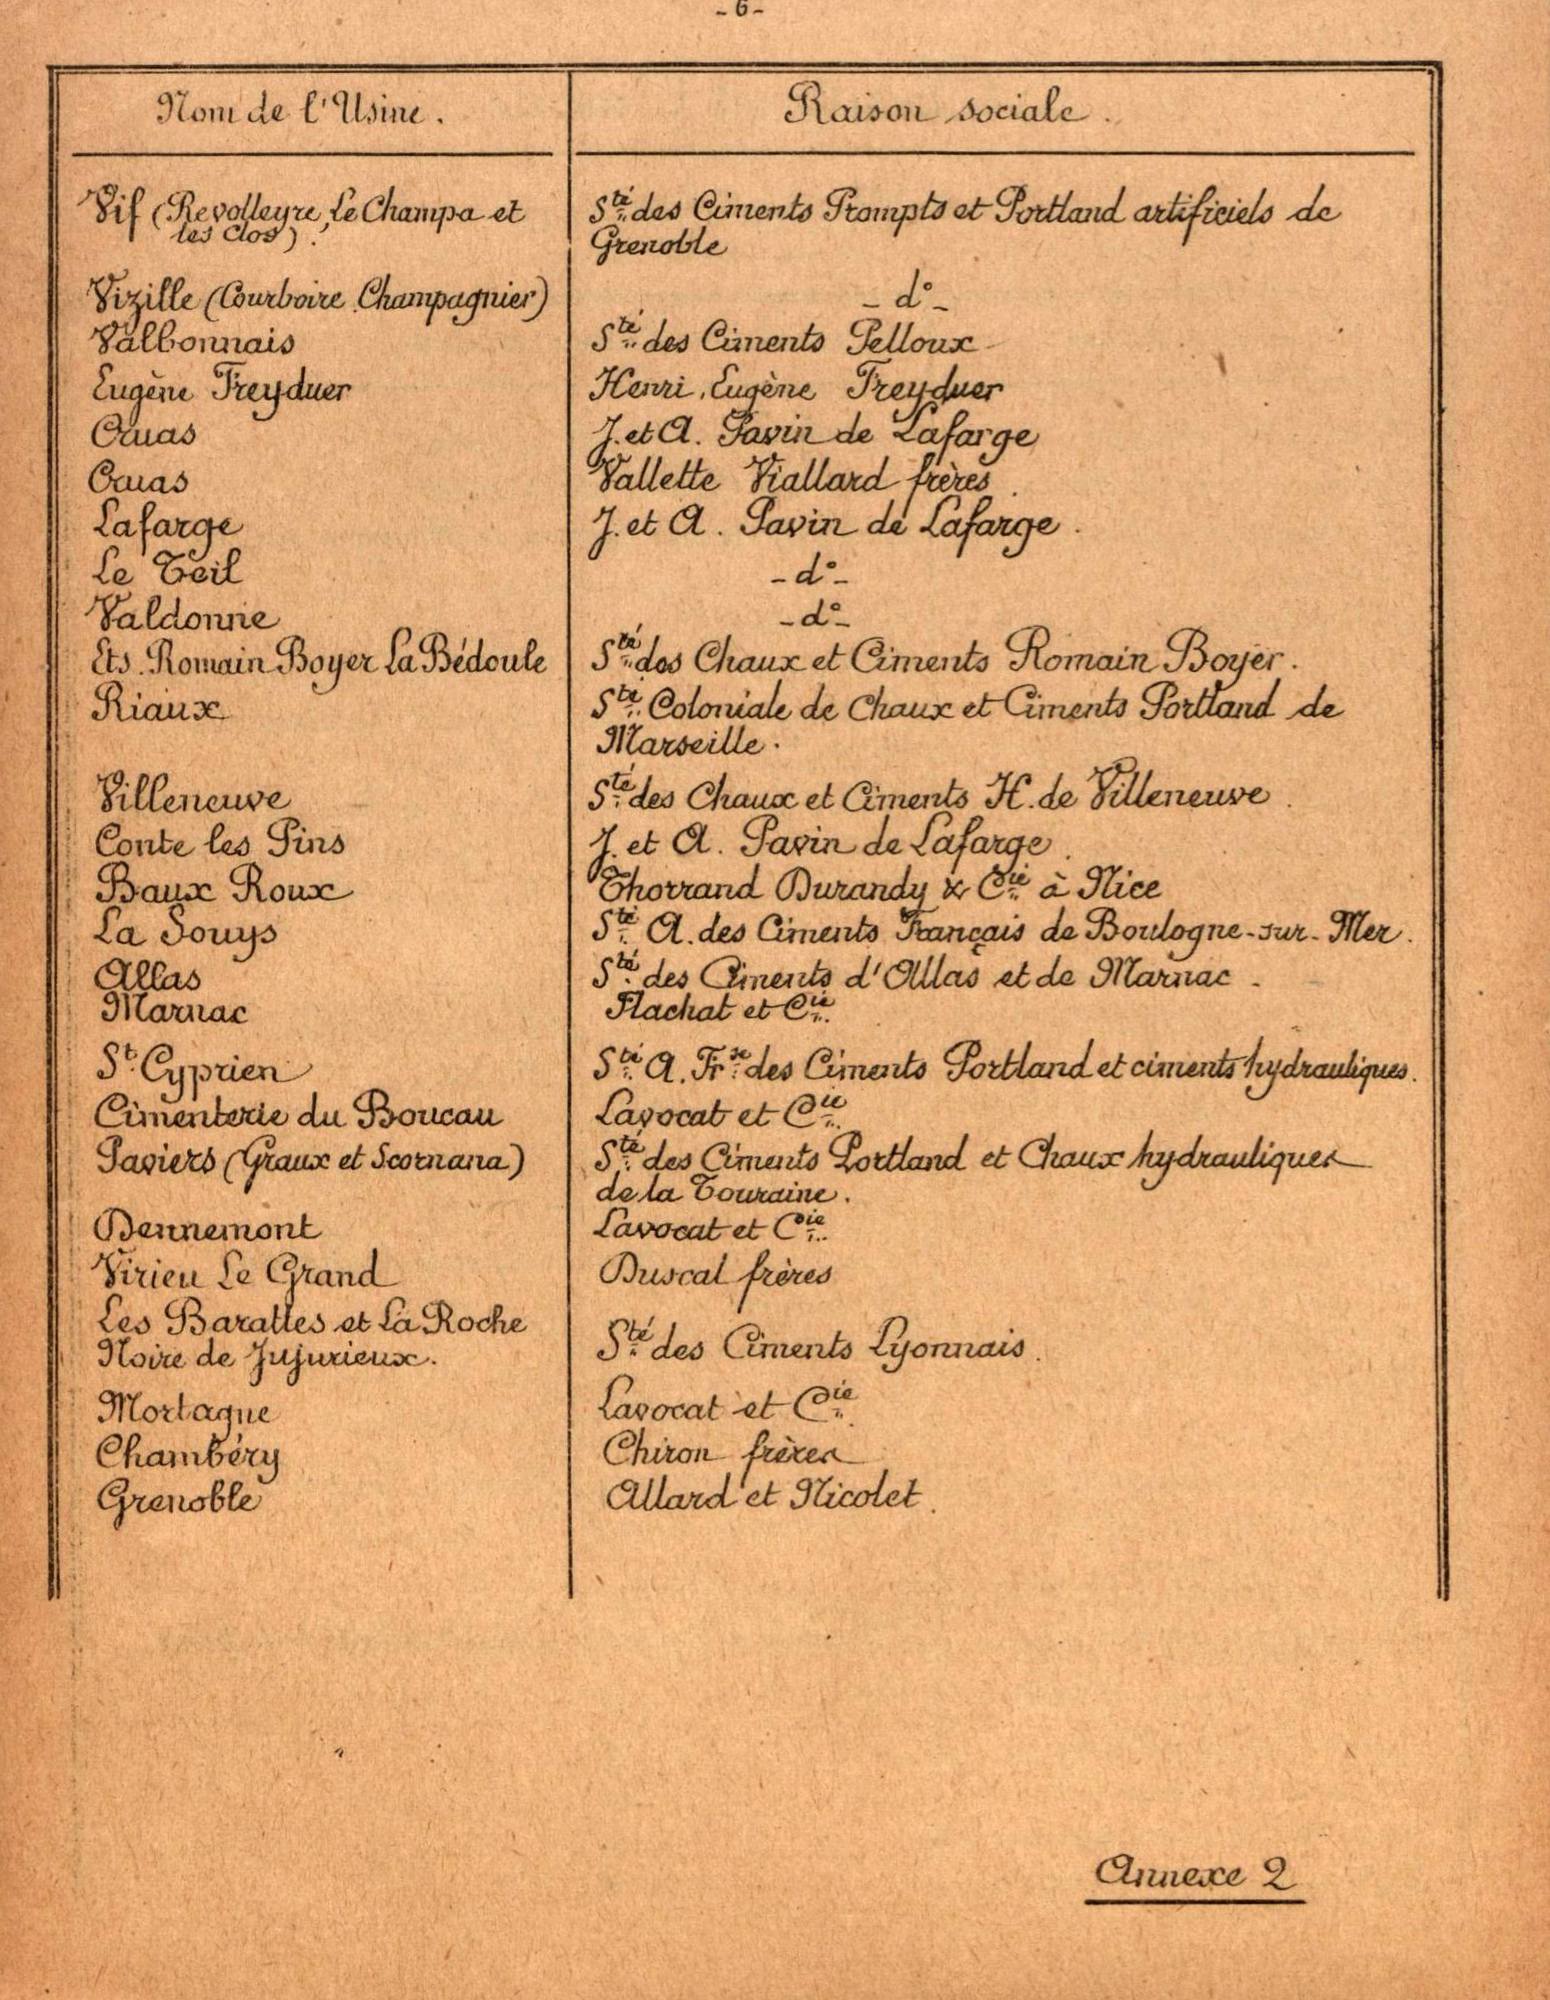 -6-
Nom de l'Usine. Raison sociale.
Vif (Revolleyre, Le Champa et Sté des Ciments Prompts et Portland artificiels de
les Clos). Grenoble
Vizille (Courboire Champagnier) -d°-
Valbonnais Sté des Ciments Pelloux
Eugène Freyduer Henri, Eugène Freyduer
Cruas J. et A. Pavin de Lafarge
Cruas Vallette Viallard frères.
Lafarge J. et A. Pavin de Lafarge.
Le Teil -d°-
Valdonne -d°-
Ets. Romain Boyer La Bédoule Sté des Chaux et Ciments Romain Boyer.
Riaux Sté Coloniale de Chaux et Ciments Portland de
Marseille.
Villeneuve Sté des Chaux et Ciments H. de Villeneuve.
Conte les Pins J. et A. Pavin de Lafarge.
Baux Roux Thorrand Durandy & Cie à Nice
La Souys Sté A. des Ciments Français de Boulogne-sur-Mer.
Allas Sté des Ciments d'Allas et de Marnac.
Marnac Flachat et Cie.
St. Cyprien Sté A. Frse des Ciments Portland et ciments hydrauliques.
Cimenterie du Boucau Lavocat et Cie.
Paviers (Graux et Scornana) Sté des Ciments Portland et Chaux hydrauliques
de la Touraine.
Dennemont Lavocat et Cie.
Virieu Le Grand Duscal frères
Les Barattes et La Roche
Noire de Jujurieux. Sté des Ciments Lyonnais.
Mortagne Lavocat et Cie.
Chambéry Chiron frères
Grenoble Allard et Nicolet.
Annexe 2